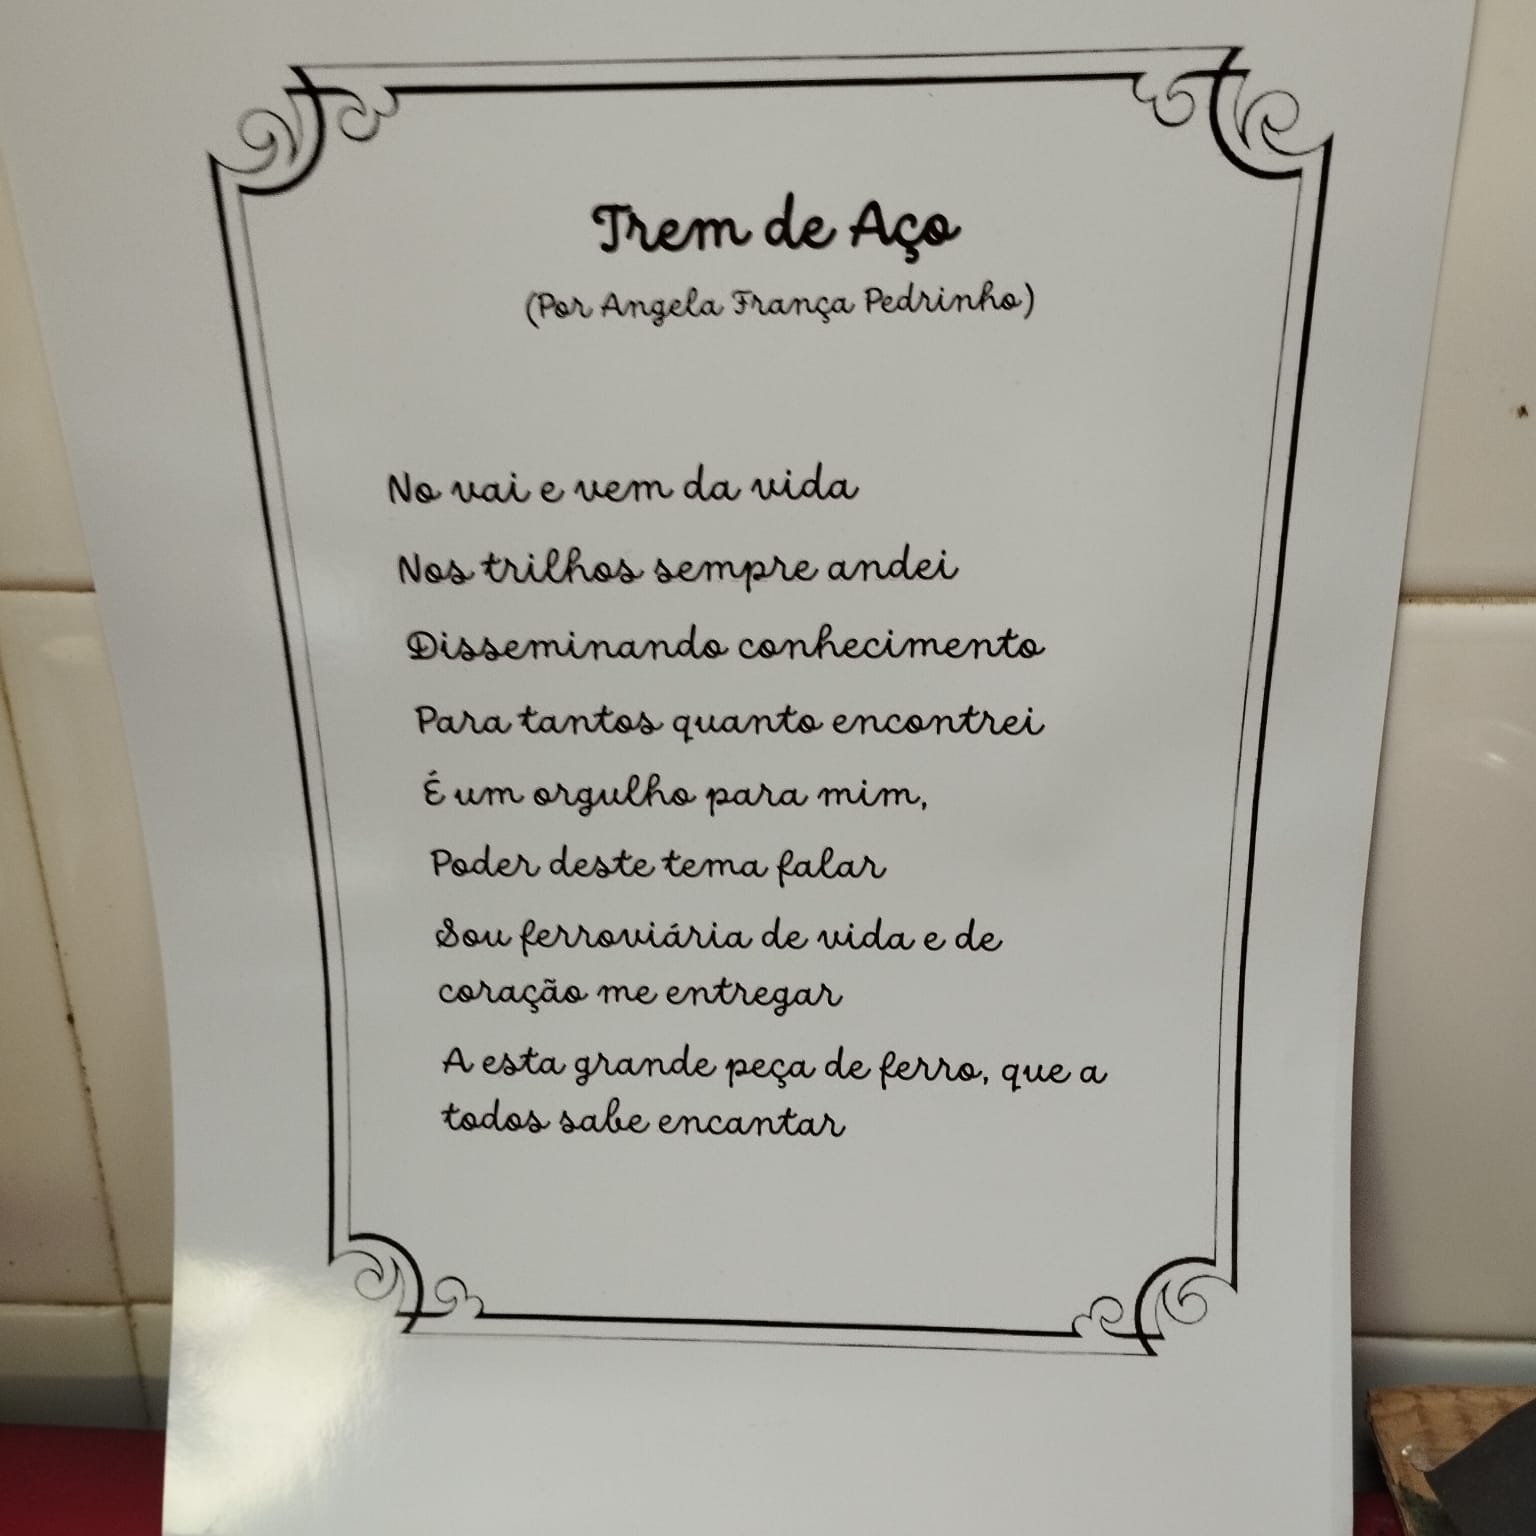 Trem de Aço
(Por Angela França Pedrinho)
No vai e vem da vida
Nos trilhos sempre andei
Disseminando conhecimento
Para tantos quanto encontrei
É um orgulho para mim,
Poder deste tema falar
Sou ferroviária de vida e de
coração me entregar
A esta grande peça de ferro, que a
todos sabe encantar